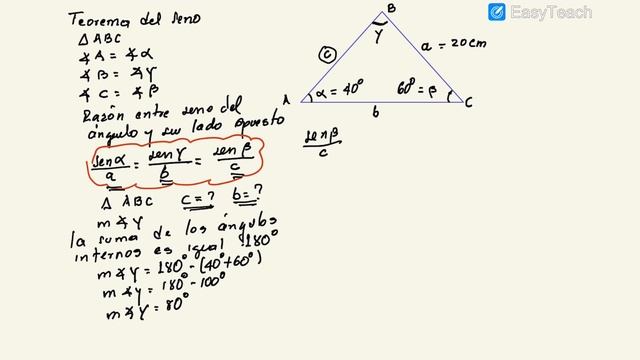 Teorema del seno
△ ABC
∡ A = ∡ α
∡ B = ∡ γ
∡ C = ∡ β
Razón entre seno del
ángulo y su lado opuesto
sen α / a = sen γ / b = sen β / c
△ ABC c = ? b = ?
m ∡ γ
la suma de los ángulos
internos es igual 180°
m ∡ γ = 180° - (40° + 60°)
m ∡ γ = 180° - 100°
m ∡ γ = 80°
EasyTeach
B
γ
c
a = 20 cm
A
α = 40°
60° = β
C
b
sen β / c